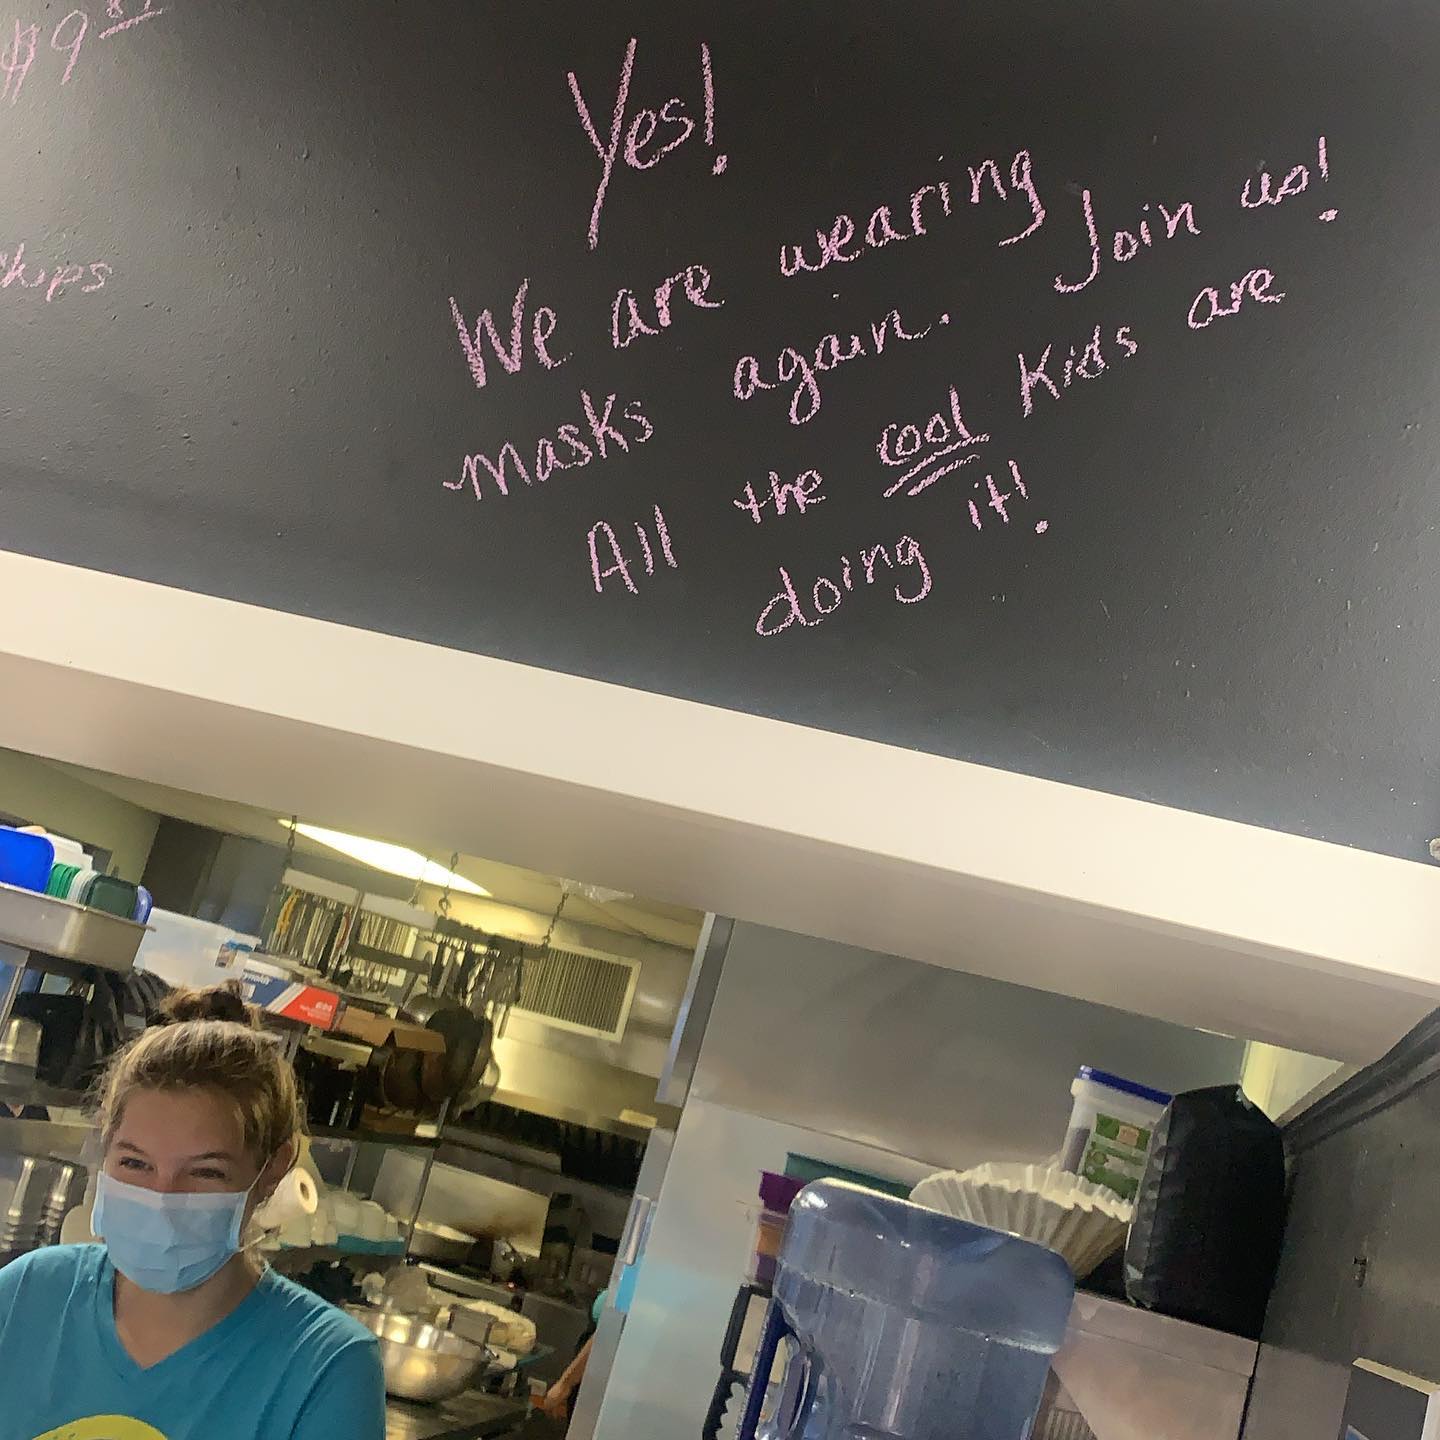 $9
Yes!
We are wearing
masks again. Join us!
All the cool kids are
doing it!